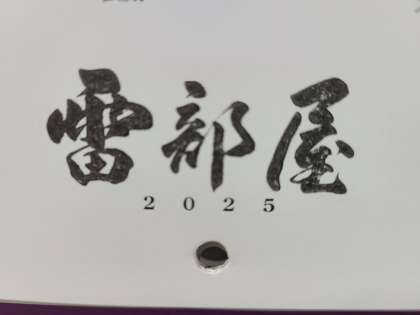 雷部屋
2025